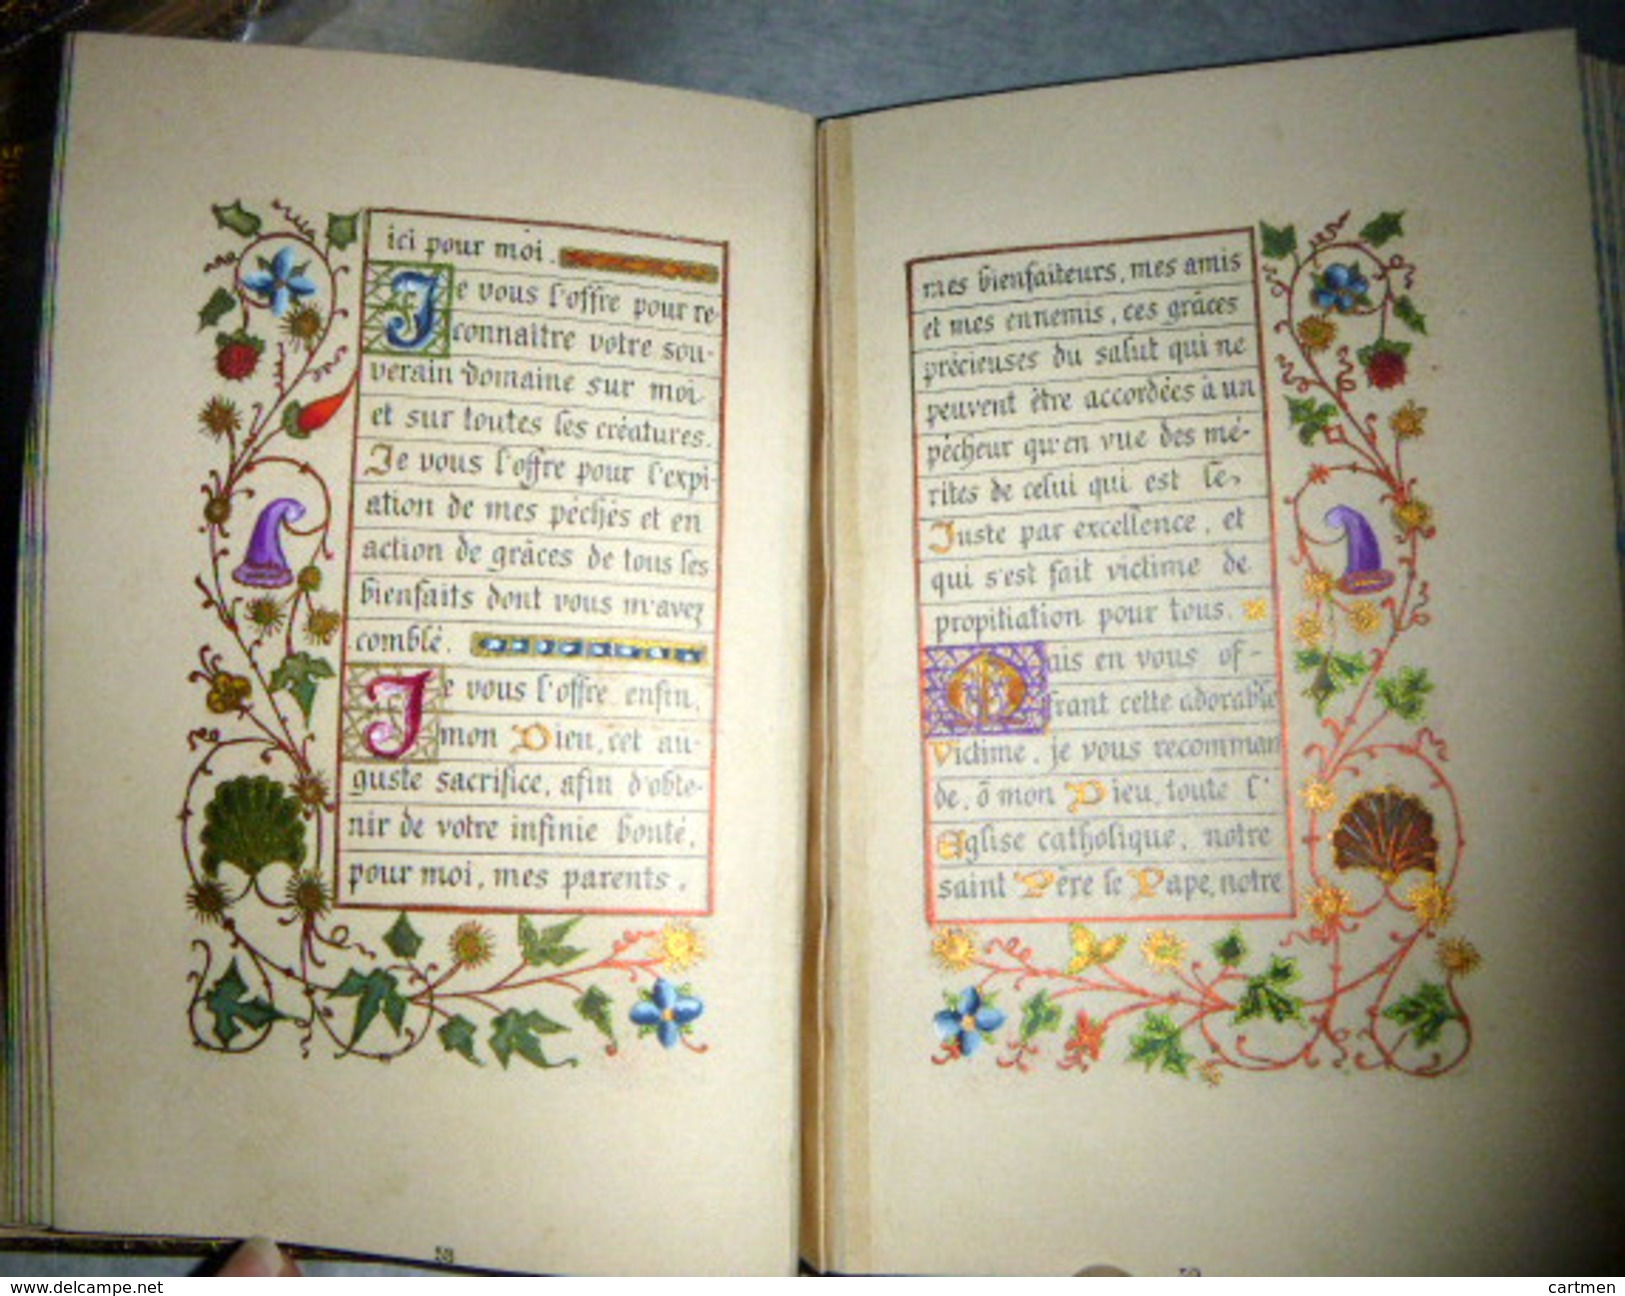 ici pour moi.
Je vous l'offre pour re-
connaître votre sou-
verain domaine sur moi
et sur toutes les créatures.
Je vous l'offre pour l'expi-
ation de mes péchés et en
action de grâces de tous les
bienfaits dont vous m'avez
comblé.
Je vous l'offre enfin,
mon Dieu, cet au-
guste sacrifice, afin d'obte-
nir de votre infinie bonté,
pour moi, mes parents,
mes bienfaiteurs, mes amis
et mes ennemis, ces grâces
précieuses du salut qui ne
peuvent être accordées à un
pécheur qu'en vue des mé-
rites de celui qui est le
Juste par excellence, et
qui s'est fait victime de
propitiation pour tous.
Mais en vous of-
frant cette adorable
Victime, je vous recomman
de, ô mon Dieu, toute l'
Eglise catholique, notre
saint Père le Pape, notre
www.delcampe.net
cartmen